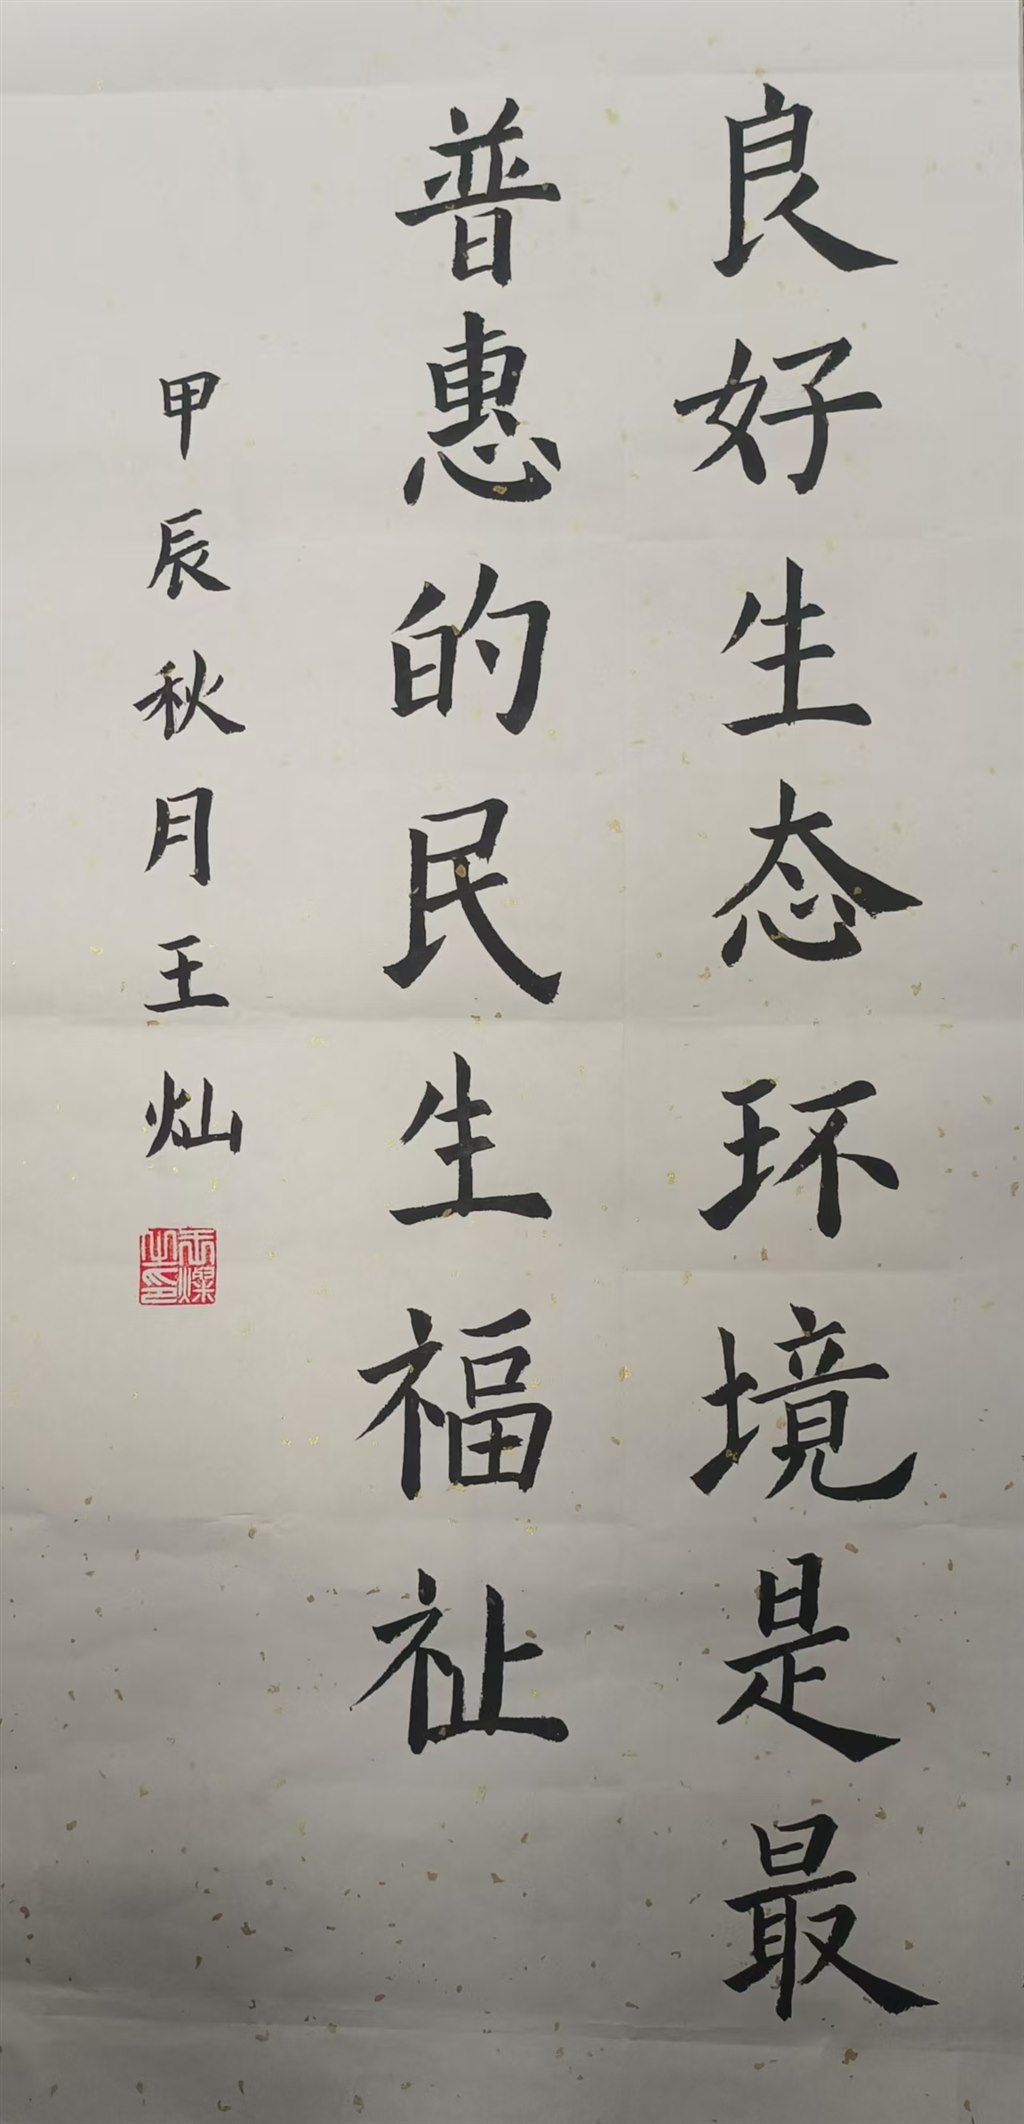 良好生态环境是最
普惠的民生福祉
甲辰秋月王灿